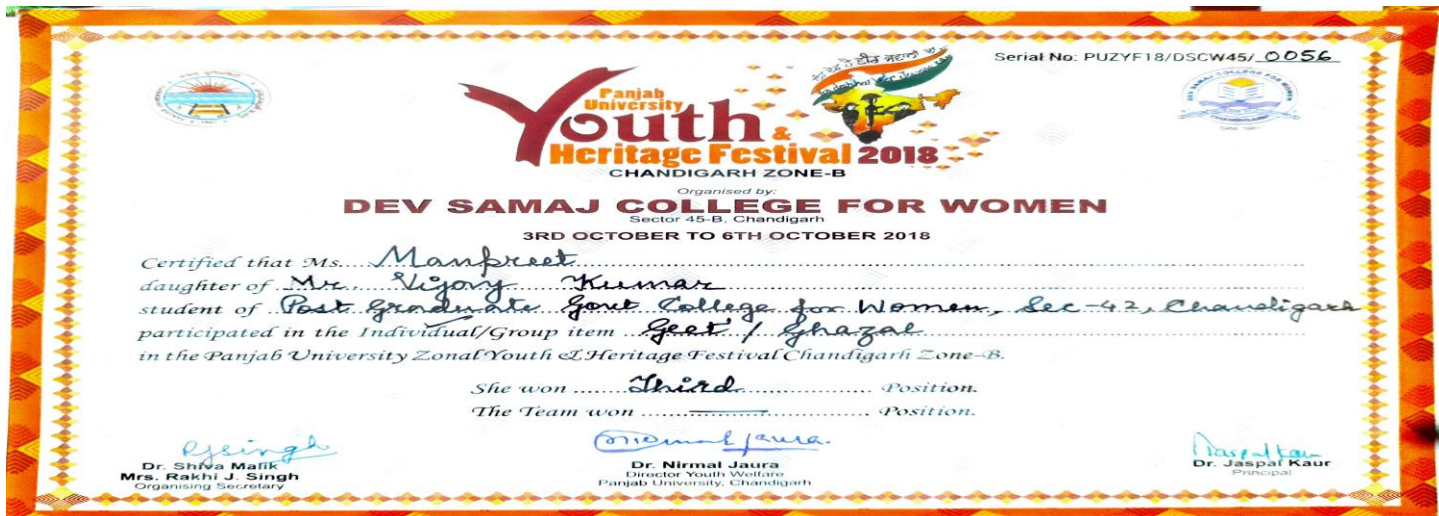 Serial No: PUZYF18/DSCW45/ 0056
Panjab
University
Youth &
Heritage Festival 2018
CHANDIGARH ZONE-B
Organised by:
DEV SAMAJ COLLEGE FOR WOMEN
Sector 45-B, Chandigarh
3RD OCTOBER TO 6TH OCTOBER 2018
Certified that Ms. Manpreet
daughter of Mr. Vijay Kumar
student of Post Graduate Govt College for Women, Sec-42, Chandigarh
participated in the Individual/Group item Geet / Ghazal
in the Panjab University Zonal Youth & Heritage Festival Chandigarh Zone-B.
She won Third Position.
The Team won Position.
Dr. Shiva Malik
Mrs. Rakhi J. Singh
Organising Secretary
Dr. Nirmal Jaura
Director Youth Welfare
Panjab University, Chandigarh
Dr. Jaspal Kaur
Principal
DEV SAMAJ COLLEGE FOR WOMEN
CHANDIGARH